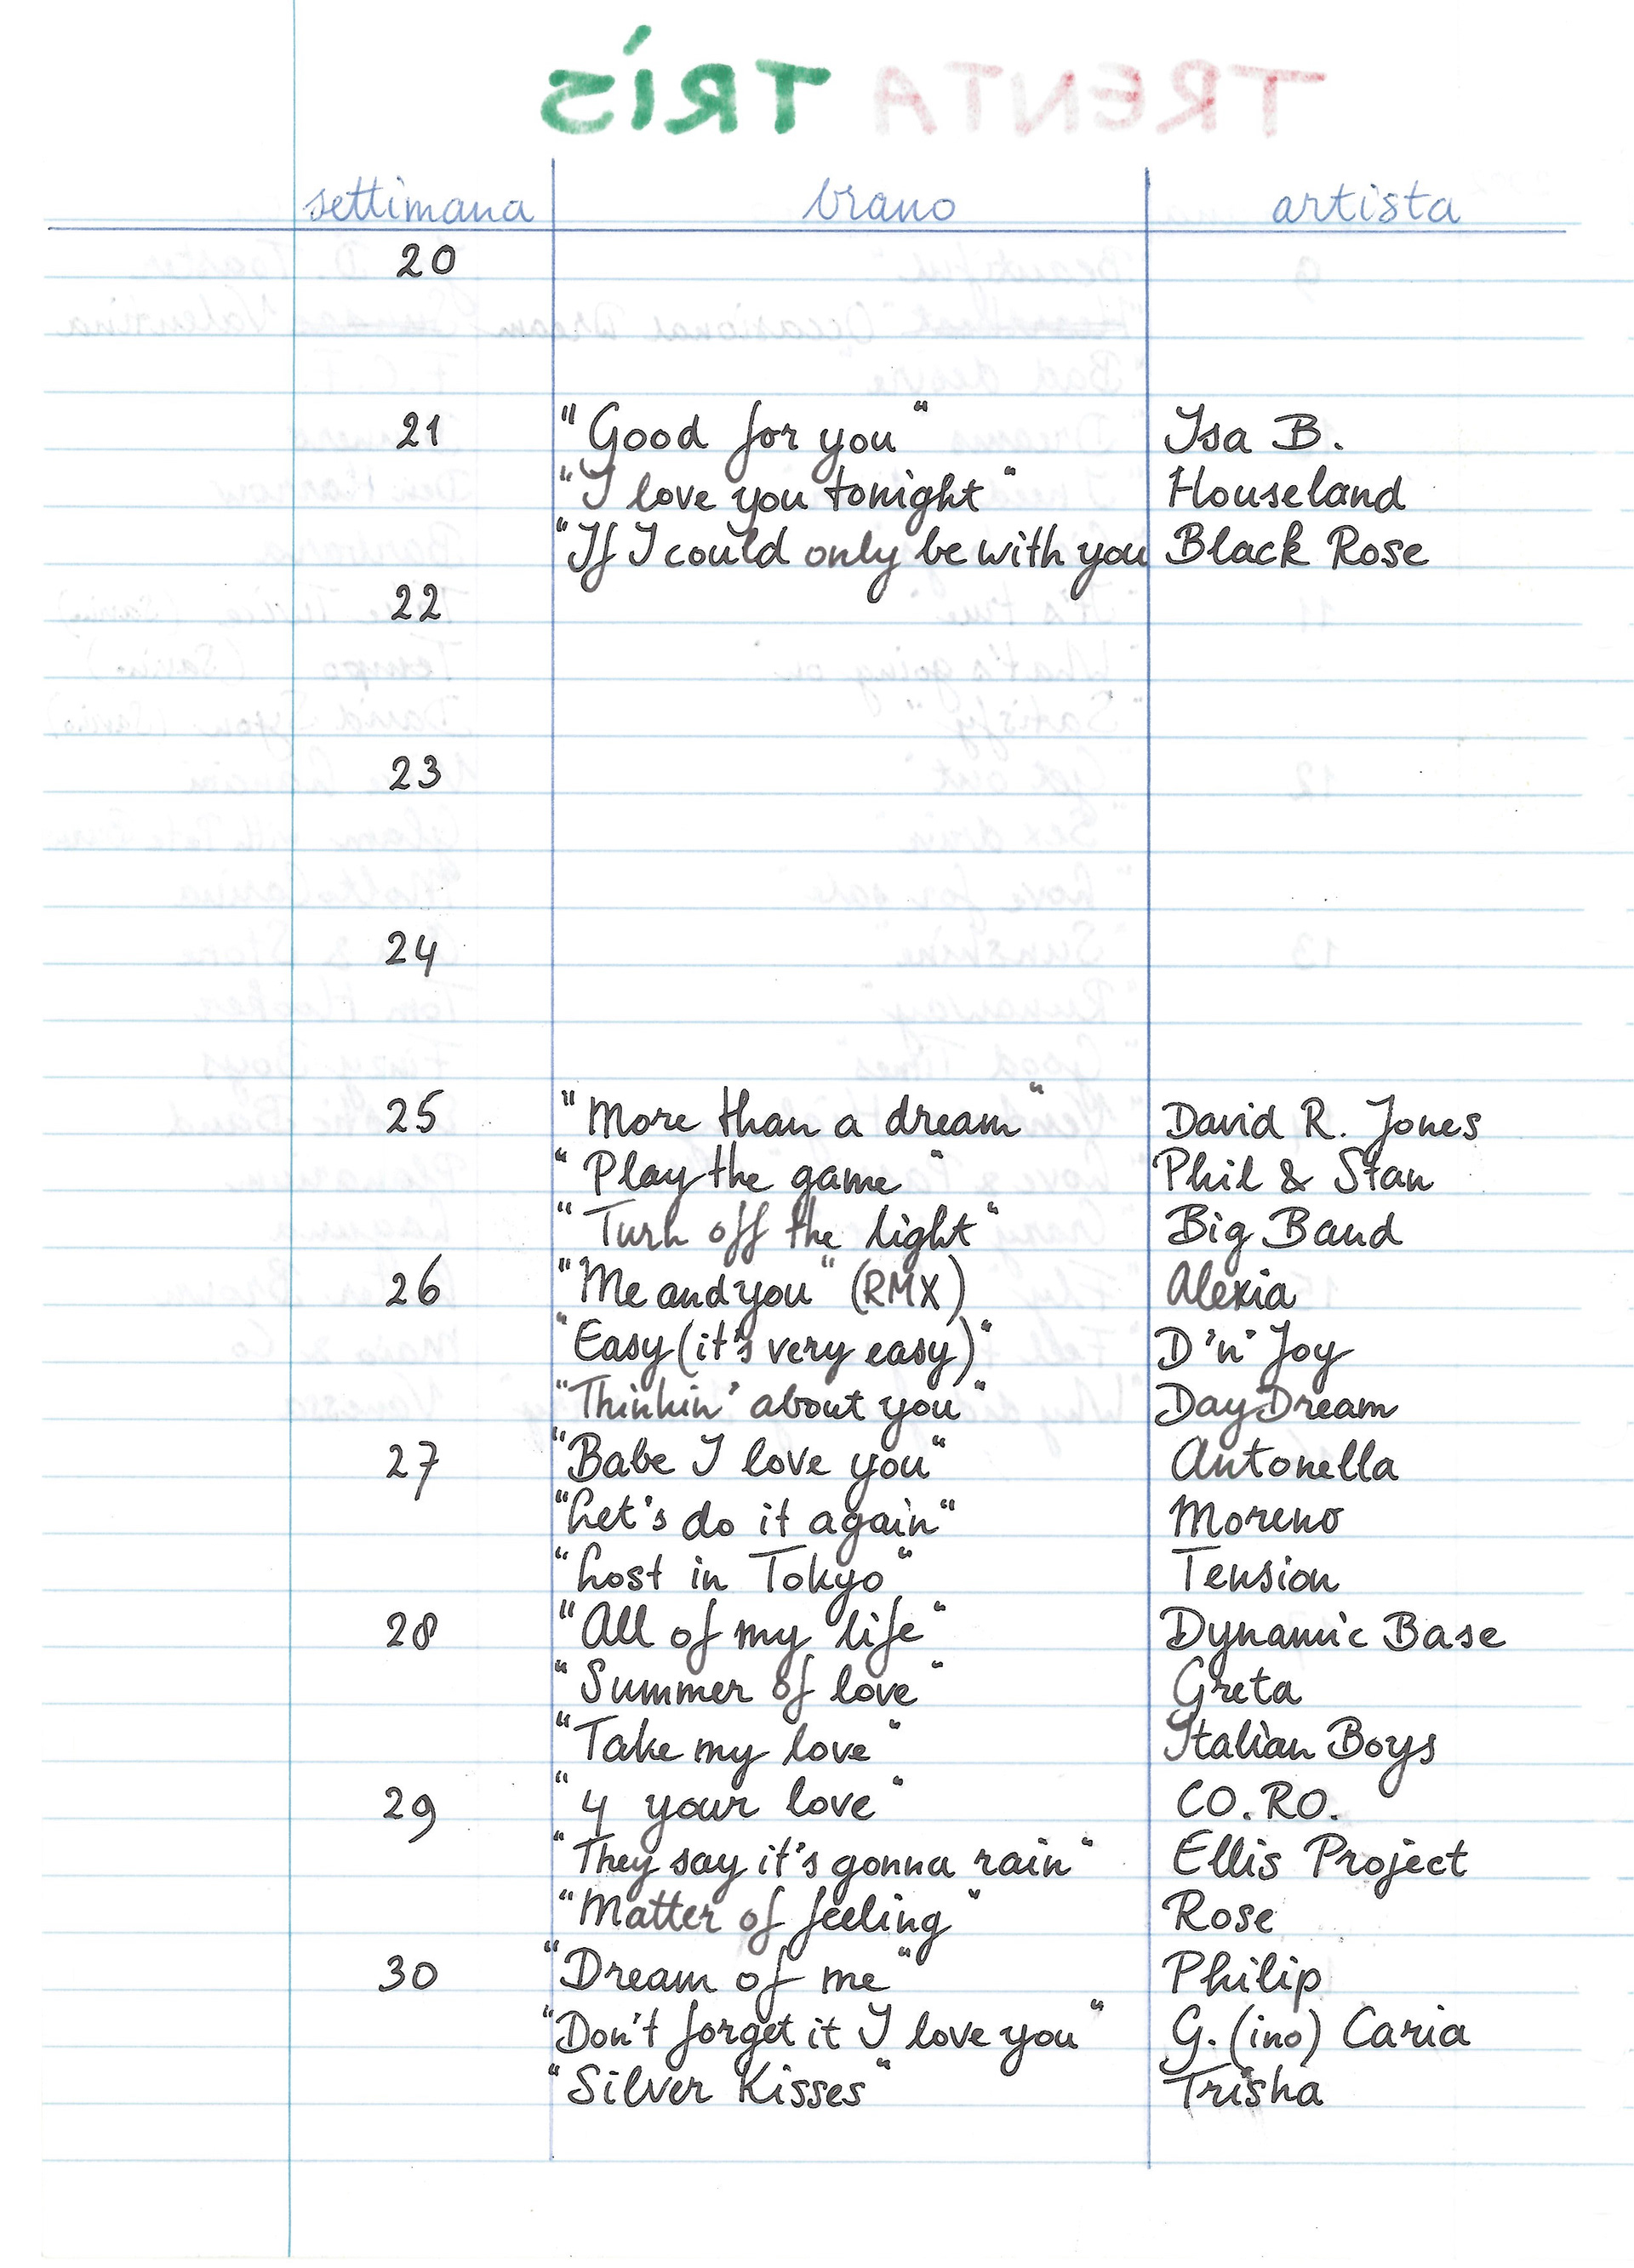 TRENTA TRÍS
settimana brano artista
20
21 "Good for you" Isa B.
"I love you tonight" Houseland
"If I could only be with you Black Rose
22
23
24
25 "More than a dream" David R. Jones
"Play the game" Phil & Stan
"Turn off the light" Big Band
26 "Me and you" (RMX) Alexia
"Easy (it's very easy)" D'n'Joy
"Thinkin' about you" DayDream
27 "Babe I love you" Antonella
"Let's do it again" Moreno
"Lost in Tokyo" Tension
28 "All of my life" Dynamic Base
"Summer of love" Greta
"Take my love" Italian Boys
29 "4 your love" CO.RO.
"They say it's gonna rain" Ellis Project
"Matter of feeling" Rose
30 "Dream of me" Philip
"Don't forget it I love you" G.(ino) Caria
"Silver Kisses" Trisha